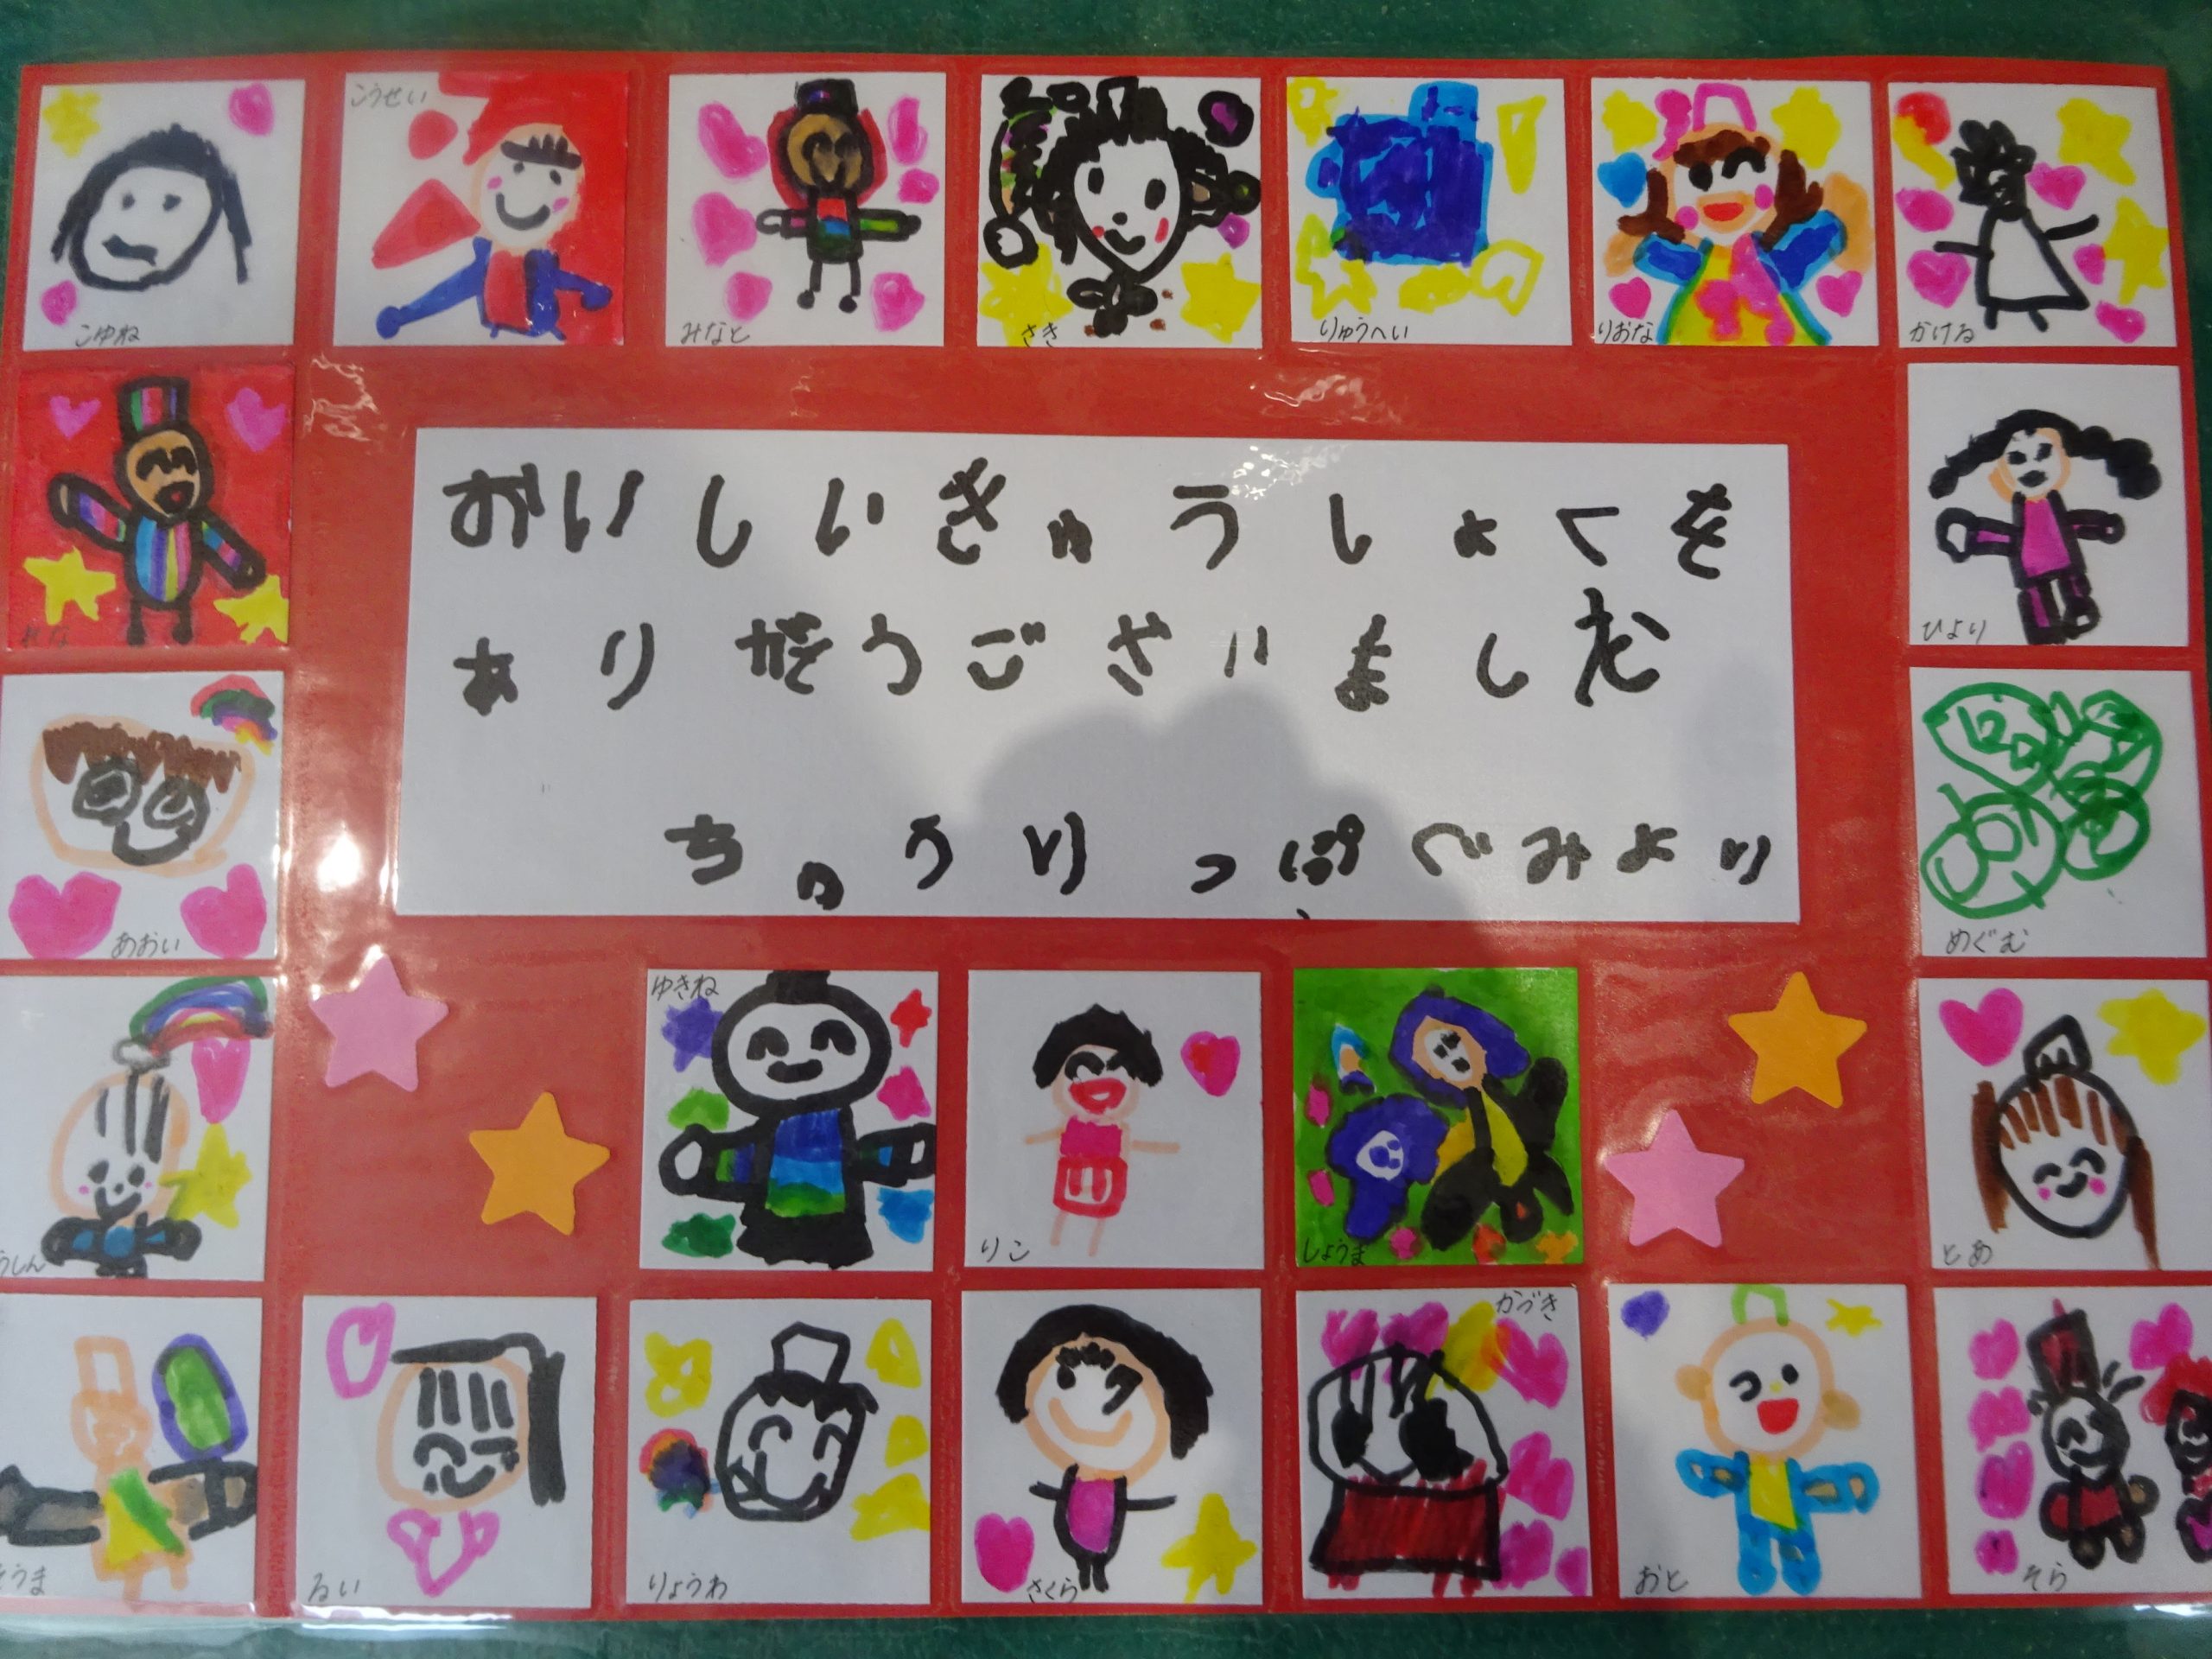 こゆね
こうせい
みなと
さき
りゅうへい
りおな
かける
おいしいきゅうしょくを
ありがとうございました
ちゅうりっぷぐみより
ひより
あおい
めぐむ
ゆきね
りこ
しょうま
とあ
うしん
そうま
るい
りょうわ
さくら
かづき
おと
そら